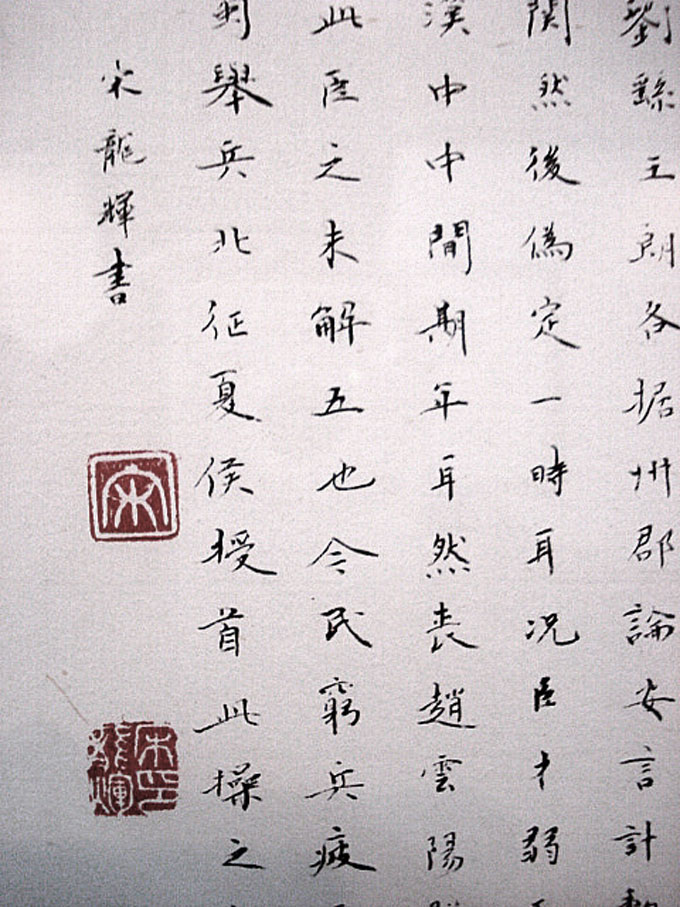 劉繇王朗各据州郡論安言計
関然後偽定一時耳況臣才弱
漢中中間期年耳然喪趙雲陽
此臣之未解五也今民窮兵疲
舉兵北征夏侯授首此操之
宋龍輝書
宋
宋印龍輝